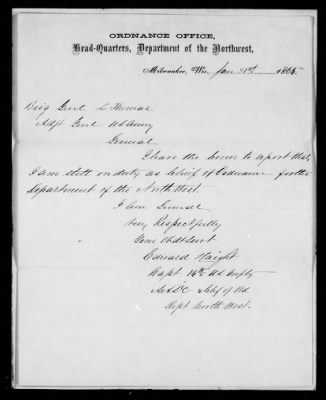 ORDNANCE OFFICE,
Head-Quarters, Department of the Northwest,
Milwaukee, Wis. Jan 31st 1865.
Brig Genl L Thomas
Adjt Genl US Army
General
I have the honor to report that
I am still on duty as Chief of Ordnance for the
Department of the North West.
I am General
Very Respectfully
Your Obdt Servt
Edward Haight
Capt 16th US Infty
& Chf of Ord
Dept North West.